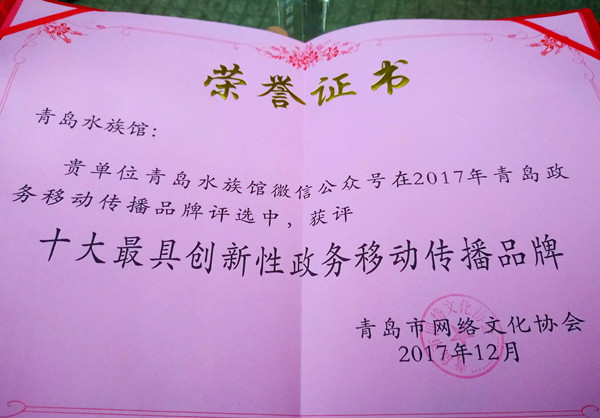 荣誉证书
青岛水族馆：
贵单位青岛水族馆微信公众号在2017年青岛政
务移动传播品牌评选中，获评
十大最具创新性政务移动传播品牌
青岛市网络文化协会
2017年12月